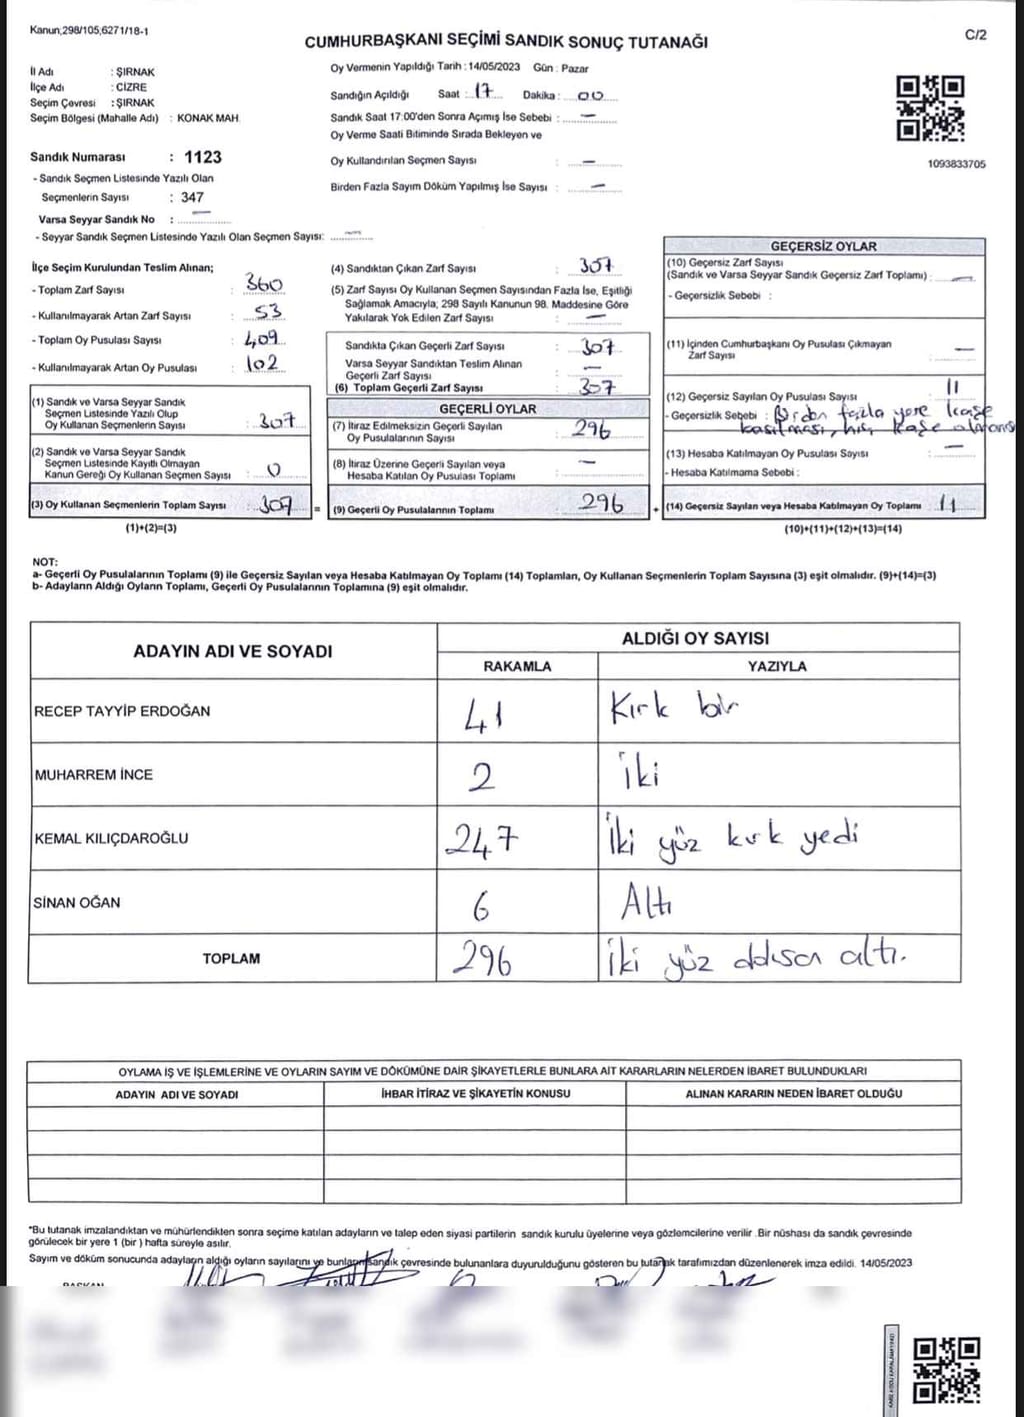 Kanun;298/105;6271/18-1
C/2
CUMHURBAŞKANI SEÇİMİ SANDIK SONUÇ TUTANAĞI
İl Adı : ŞIRNAK
İlçe Adı : CİZRE
Seçim Çevresi : ŞIRNAK
Seçim Bölgesi (Mahalle Adı) : KONAK MAH.
Sandık Numarası : 1123
- Sandık Seçmen Listesinde Yazılı Olan
Seçmenlerin Sayısı : 347
Varsa Seyyar Sandık No : —
- Seyyar Sandık Seçmen Listesinde Yazılı Olan Seçmen Sayısı: —
Oy Vermenin Yapıldığı Tarih : 14/05/2023 Gün : Pazar
Sandığın Açıldığı Saat : 17 Dakika : 00
Sandık Saat 17:00'den Sonra Açımış İse Sebebi : —
Oy Verme Saati Bitiminde Sırada Bekleyen ve
Oy Kullandırılan Seçmen Sayısı : —
Birden Fazla Sayım Döküm Yapılmış İse Sayısı : —
1093833705
İlçe Seçim Kurulundan Teslim Alınan;
- Toplam Zarf Sayısı : 360
- Kullanılmayarak Artan Zarf Sayısı : 53
- Toplam Oy Pusulası Sayısı : 409
- Kullanılmayarak Artan Oy Pusulası : 102
(1) Sandık ve Varsa Seyyar Sandık
Seçmen Listesinde Yazılı Olup
Oy Kullanan Seçmenlerin Sayısı : 307
(2) Sandık ve Varsa Seyyar Sandık
Seçmen Listesinde Kayıtlı Olmayan
Kanun Gereği Oy Kullanan Seçmen Sayısı : 0
(3) Oy Kullanan Seçmenlerin Toplam Sayısı : 307 =
(1)+(2)=(3)
(4) Sandıktan Çıkan Zarf Sayısı : 307
(5) Zarf Sayısı Oy Kullanan Seçmen Sayısından Fazla İse, Eşitliği
Sağlamak Amacıyla, 298 Sayılı Kanunun 98. Maddesine Göre
Yakılarak Yok Edilen Zarf Sayısı : —
Sandıkta Çıkan Geçerli Zarf Sayısı : 307
Varsa Seyyar Sandıktan Teslim Alınan
Geçerli Zarf Sayısı : —
(6) Toplam Geçerli Zarf Sayısı : 307
GEÇERLİ OYLAR
(7) İtiraz Edilmeksizin Geçerli Sayılan
Oy Pusulalarının Sayısı : 296
(8) İtiraz Üzerine Geçerli Sayılan veya
Hesaba Katılan Oy Pusulası Toplamı : —
(9) Geçerli Oy Pusulalarının Toplamı : 296 +
GEÇERSİZ OYLAR
(10) Geçersiz Zarf Sayısı
(Sandık ve Varsa Seyyar Sandık Geçersiz Zarf Toplamı) : —
- Geçersizlik Sebebi :
(11) İçinden Cumhurbaşkanı Oy Pusulası Çıkmayan
Zarf Sayısı : —
(12) Geçersiz Sayılan Oy Pusulası Sayısı : 11
- Geçersizlik Sebebi : Birden fazla yere kaşe
basılması, hiç kaşe
(13) Hesaba Katılmayan Oy Pusulası Sayısı : —
- Hesaba Katılmama Sebebi :
(14) Geçersiz Sayılan veya Hesaba Katılmayan Oy Toplamı : 11
(10)+(11)+(12)+(13)=(14)
NOT:
a- Geçerli Oy Pusulalarının Toplamı (9) ile Geçersiz Sayılan veya Hesaba Katılmayan Oy Toplamı (14) Toplamları, Oy Kullanan Seçmenlerin Toplam Sayısına (3) eşit olmalıdır. (9)+(14)=(3)
b- Adayların Aldığı Oyların Toplamı, Geçerli Oy Pusulalarının Toplamına (9) eşit olmalıdır.
ADAYIN ADI VE SOYADI
ALDIĞI OY SAYISI
RAKAMLA YAZIYLA
RECEP TAYYİP ERDOĞAN 41 Kırk bir
MUHARREM İNCE 2 İki
KEMAL KILIÇDAROĞLU 247 İki yüz kırk yedi
SİNAN OĞAN 6 Altı
TOPLAM 296 İki yüz altı.
OYLAMA İŞ VE İŞLEMLERİNE VE OYLARIN SAYIM VE DÖKÜMÜNE DAİR ŞİKAYETLERLE BUNLARA AİT KARARLARIN NELERDEN İBARET BULUNDUKLARI
ADAYIN ADI VE SOYADI İHBAR İTİRAZ VE ŞİKAYETİN KONUSU ALINAN KARARIN NEDEN İBARET OLDUĞU
*Bu tutanak imzalandıktan ve mühürlendikten sonra seçime katılan adayların ve talep eden siyasi partilerin sandık kurulu üyelerine veya gözlemcilerine verilir .Bir nüshası da sandık çevresinde
görülecek bir yere 1 (bir ) hafta süreyle asılır.
Sayım ve döküm sonucunda adayların aldığı oyların sayılarını ve bunların sandık çevresinde bulunanlara duyurulduğunu gösteren bu tutanak tarafımızdan düzenlenerek imza edildi. 14/05/2023